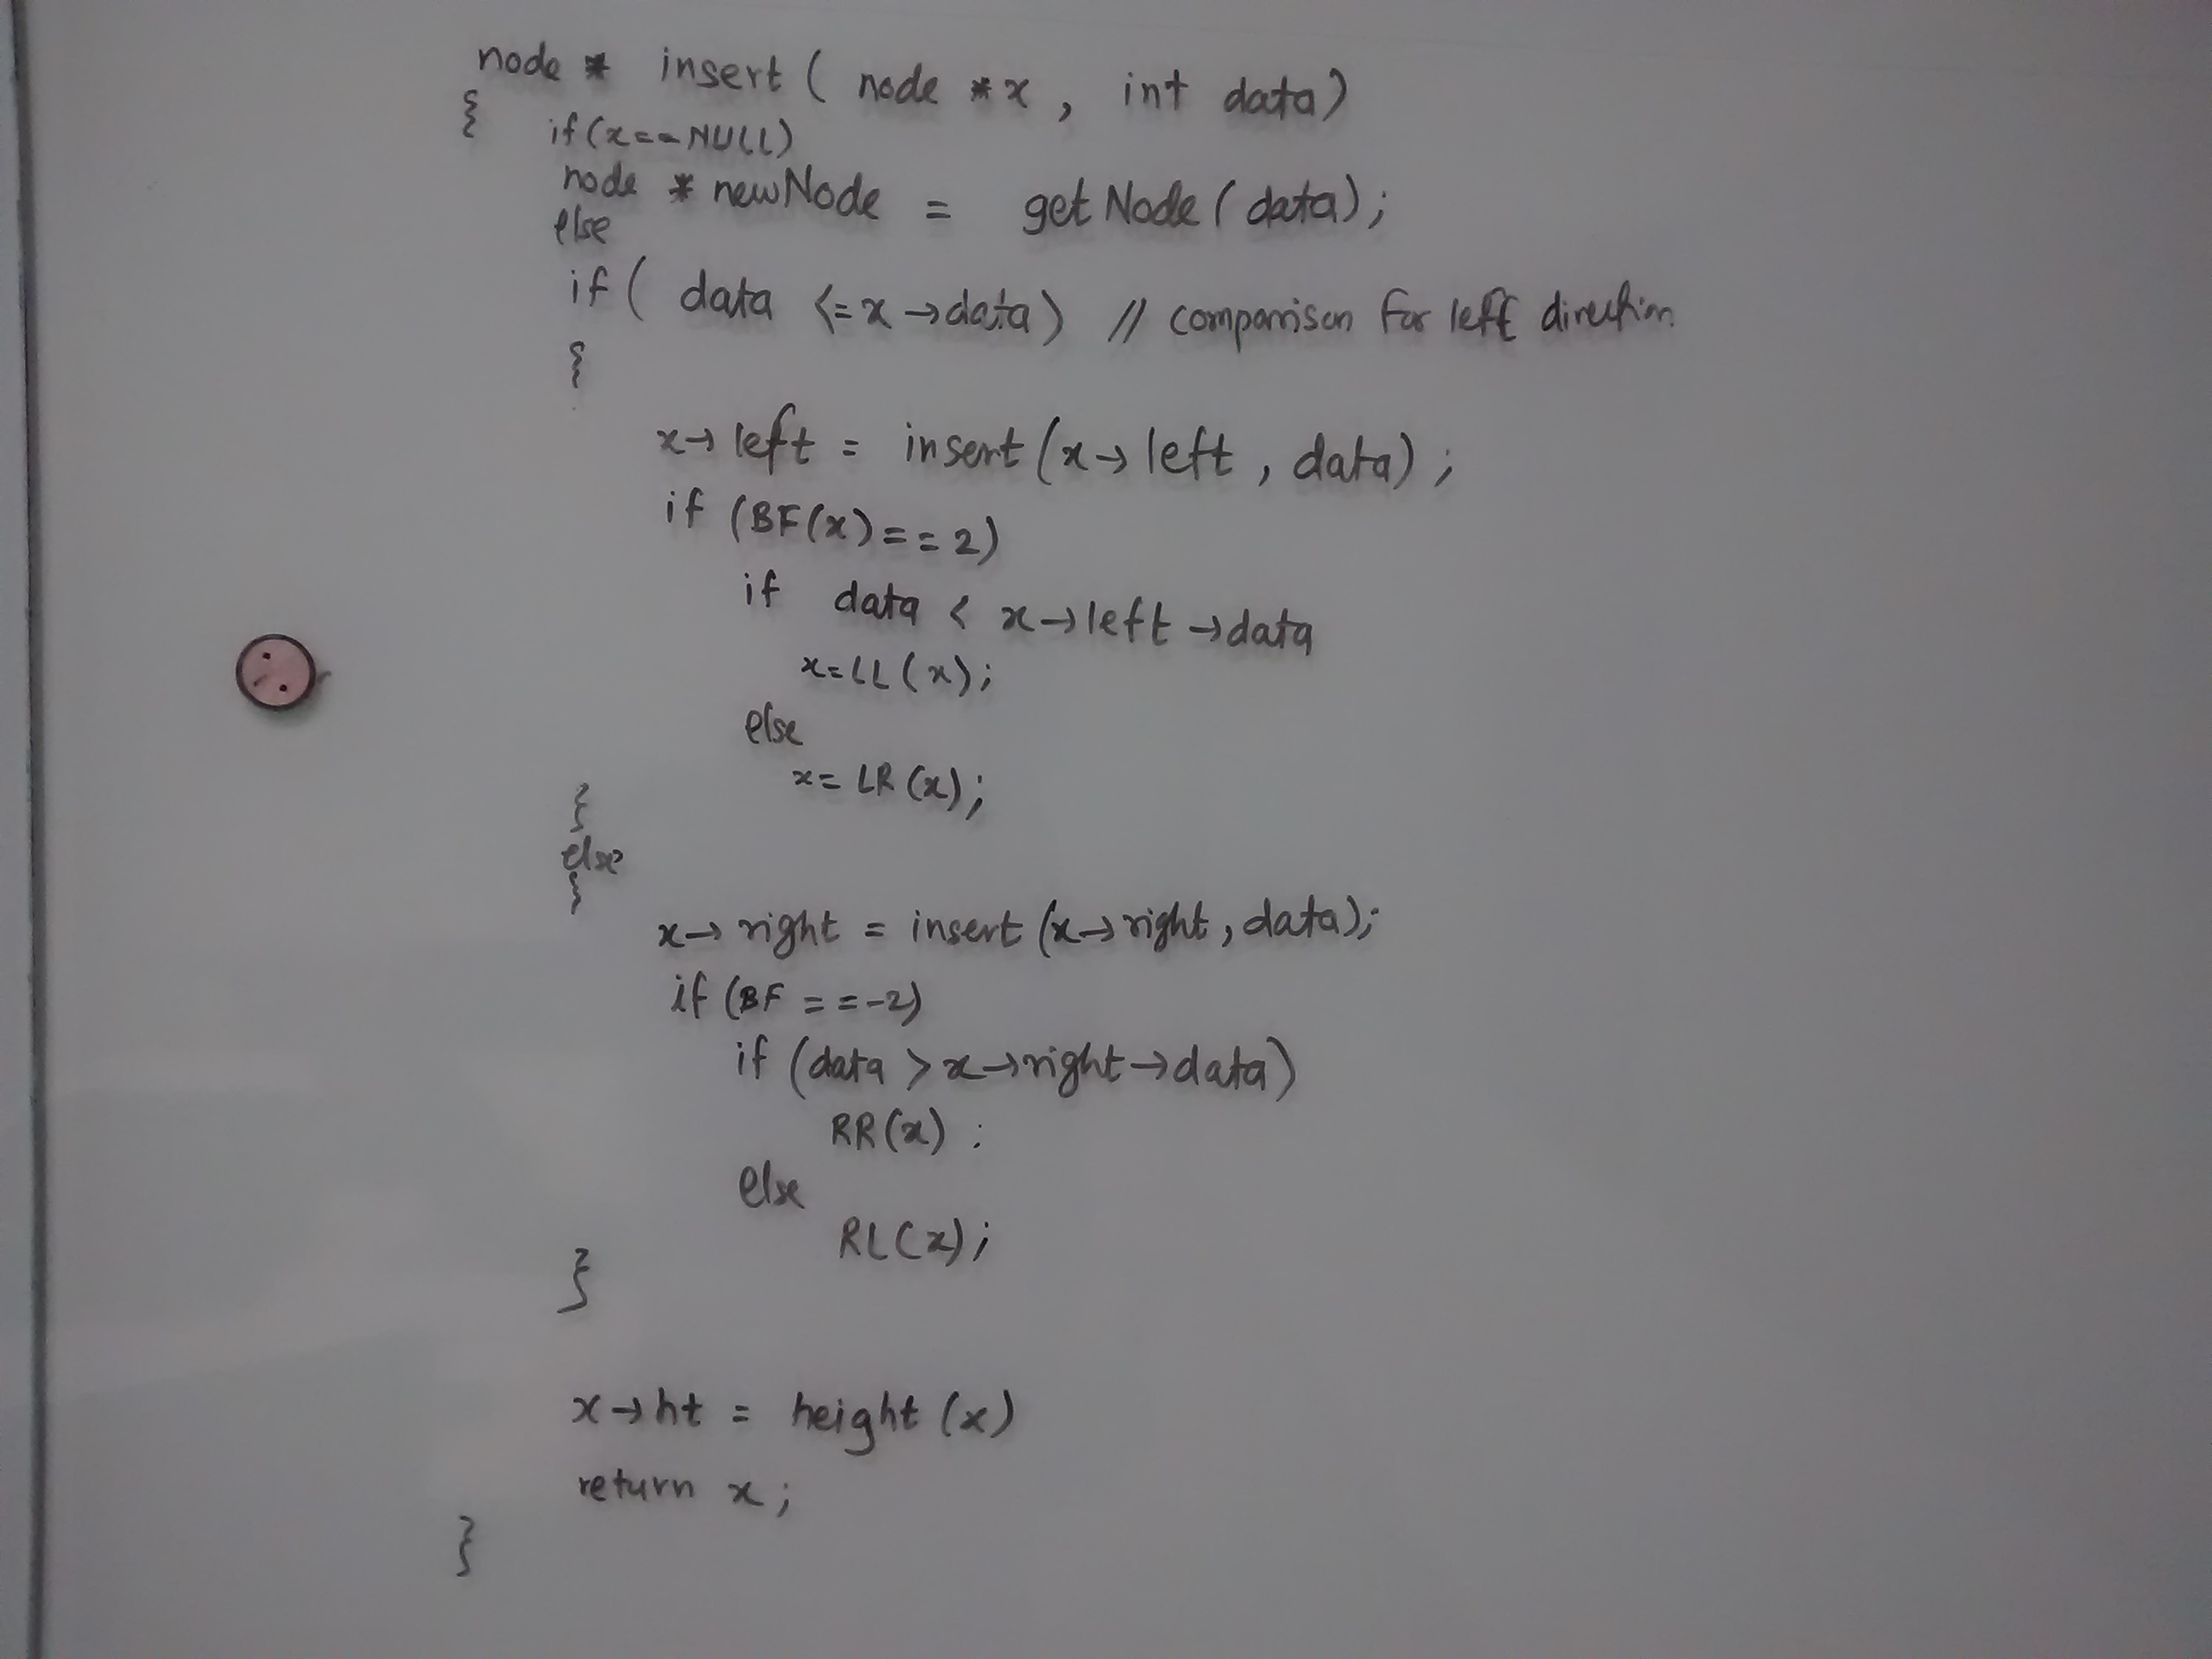 node * insert ( node *x , int data)
{ if(x==NULL)
node * newNode = getNode(data);
else
if( data <=x→data) // comparrison for left direction
{
x→left = insert(x→left , data);
if (BF(x)==2)
if data < x→left→data
x=LL(x);
else
x=LR(x);
}
else
{
x→right = insert(x→right, data);
if (BF ==-2)
if (data > x→right→data)
RR(x) ;
else
RL(x);
}
x→ht = height(x)
return x;
}